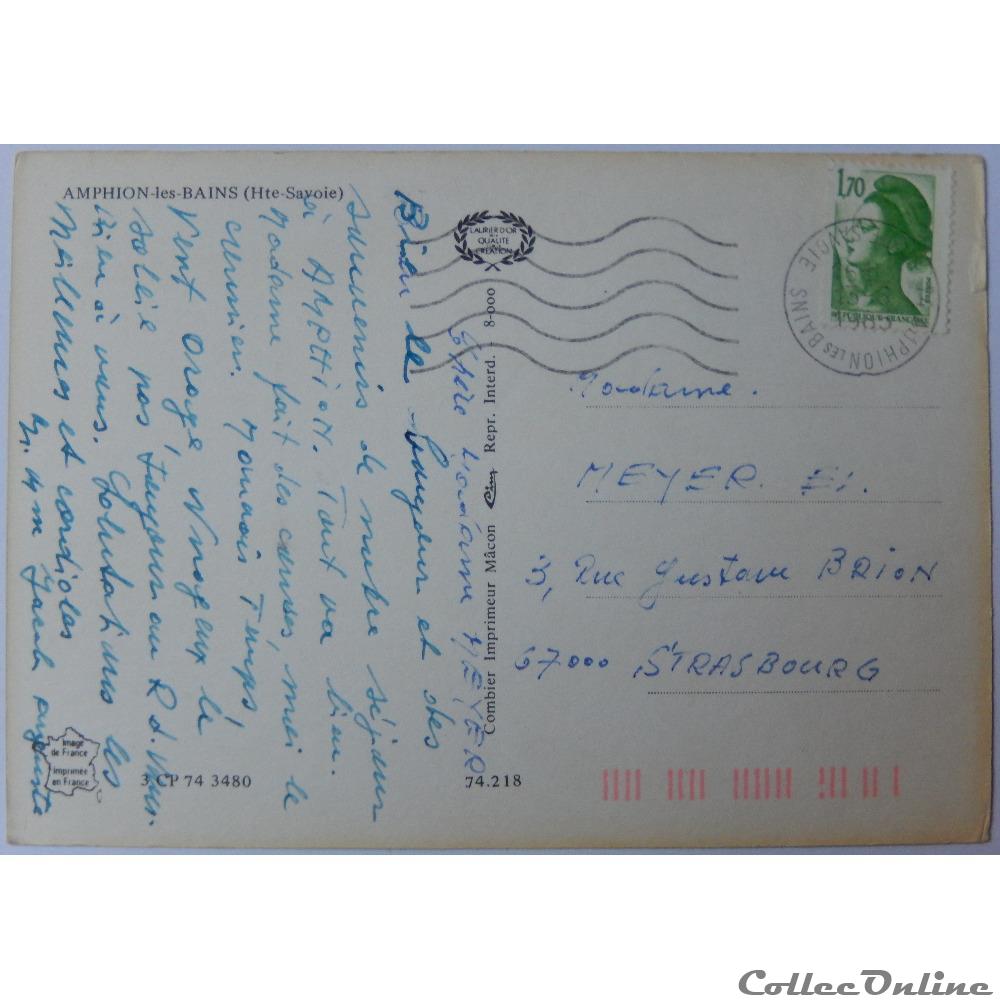 AMPHION-les-BAINS (Hte-Savoie)
LAURIER D'OR
DE LA
QUALITÉ
CRÉATION
1,70
REPUBLIQUE FRANÇAISE
AMPHION LES BAINS
SAVOIE
1985
Chère Madame MEYER
Bien le bonjour et des
souvenirs de notre séjour
à AMPHION. Tout va bien.
Madame fait des cures, moi le
curiste. Mauvais Temps,
Vent orage, Nuageux le
soleil pas toujours au R.d.Vous.
Bien à vous. Salutations les
Meilleures et cordiales
Madame.
MEYER. El.
3, Rue Gustave BRION
67000 STRASBOURG
Combier Imprimeur Mâcon Cim Repr. Interd. - 8-000
Image
de France
Imprimée
en France
3 CP 74 3480
74.218
CollecOnline